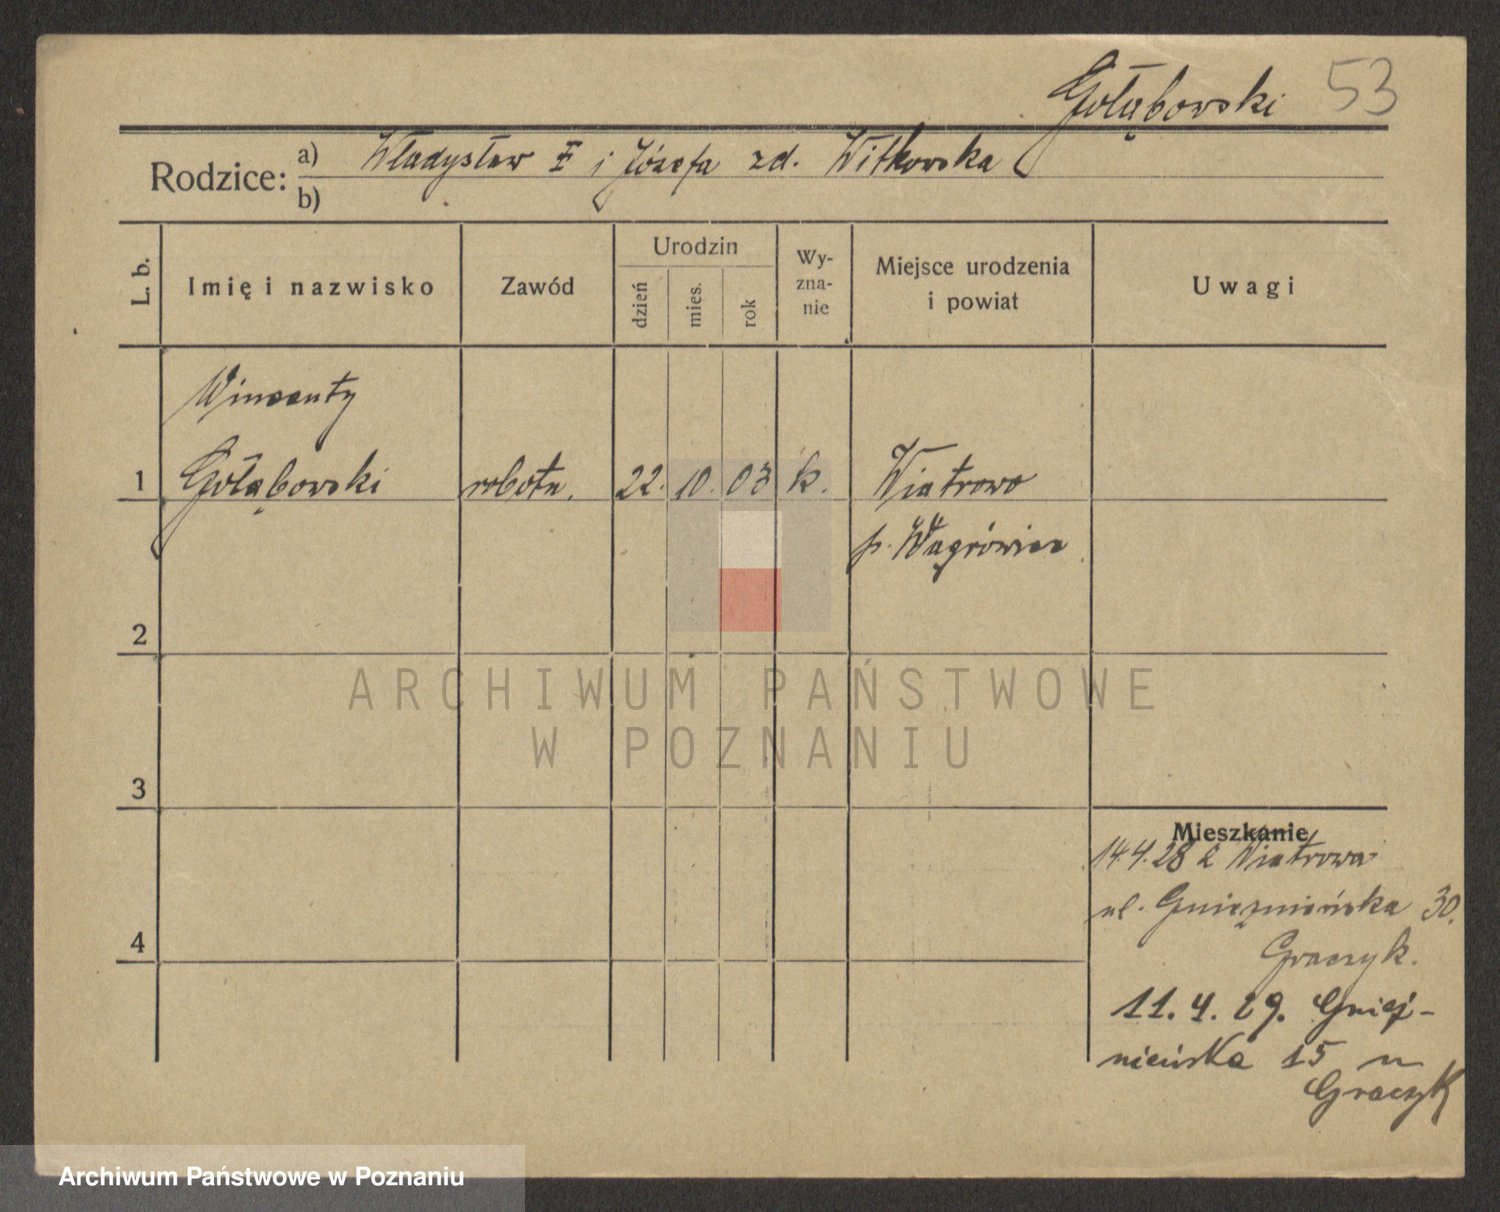 Gołąbowski 53
Rodzice: a) Władysław i Józefa zd. Witkowska
b)
L. b.
Imię i nazwisko
Zawód
Urodzin
dzień
mies.
rok
Wy-
zna-
nie
Miejsce urodzenia
i powiat
Uwagi
Wincenty
1 Gołąbowski robotn. 22. 10. 03 k. Wiatrowo
p. Wągrówiec
2
3
4
Mieszkanie
14.4.28 z Wiatrowa
ul. Gnieznieńska 30.
Graczyk.
11.4.29. Gnieź-
nieńska 15 u
Graczyk
ARCHIWUM PAŃSTWOWE
W POZNANIU
Archiwum Państwowe w Poznaniu